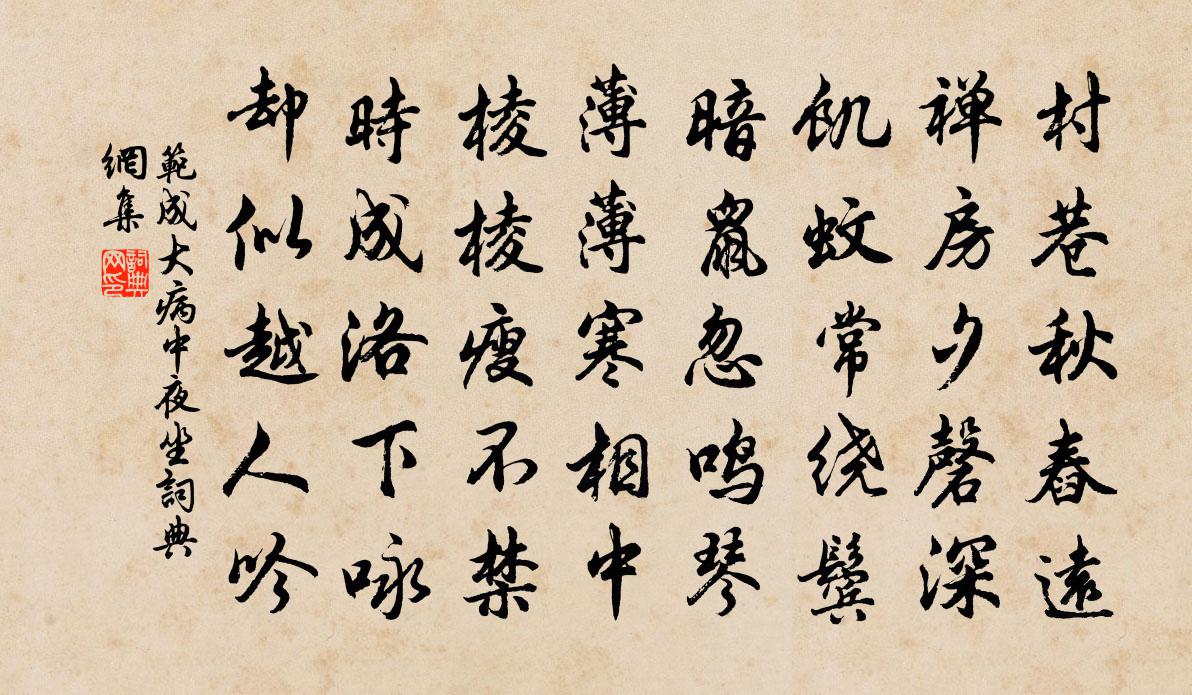 村巷秋舂遠
禅房夕磬深
飢蚊常绕鬓
暗鼠忽鸣琴
薄薄寒相中
棱棱瘦不禁
時成洛下咏
却似越人吟
範成大病中夜坐詞典
網集
詞典网印